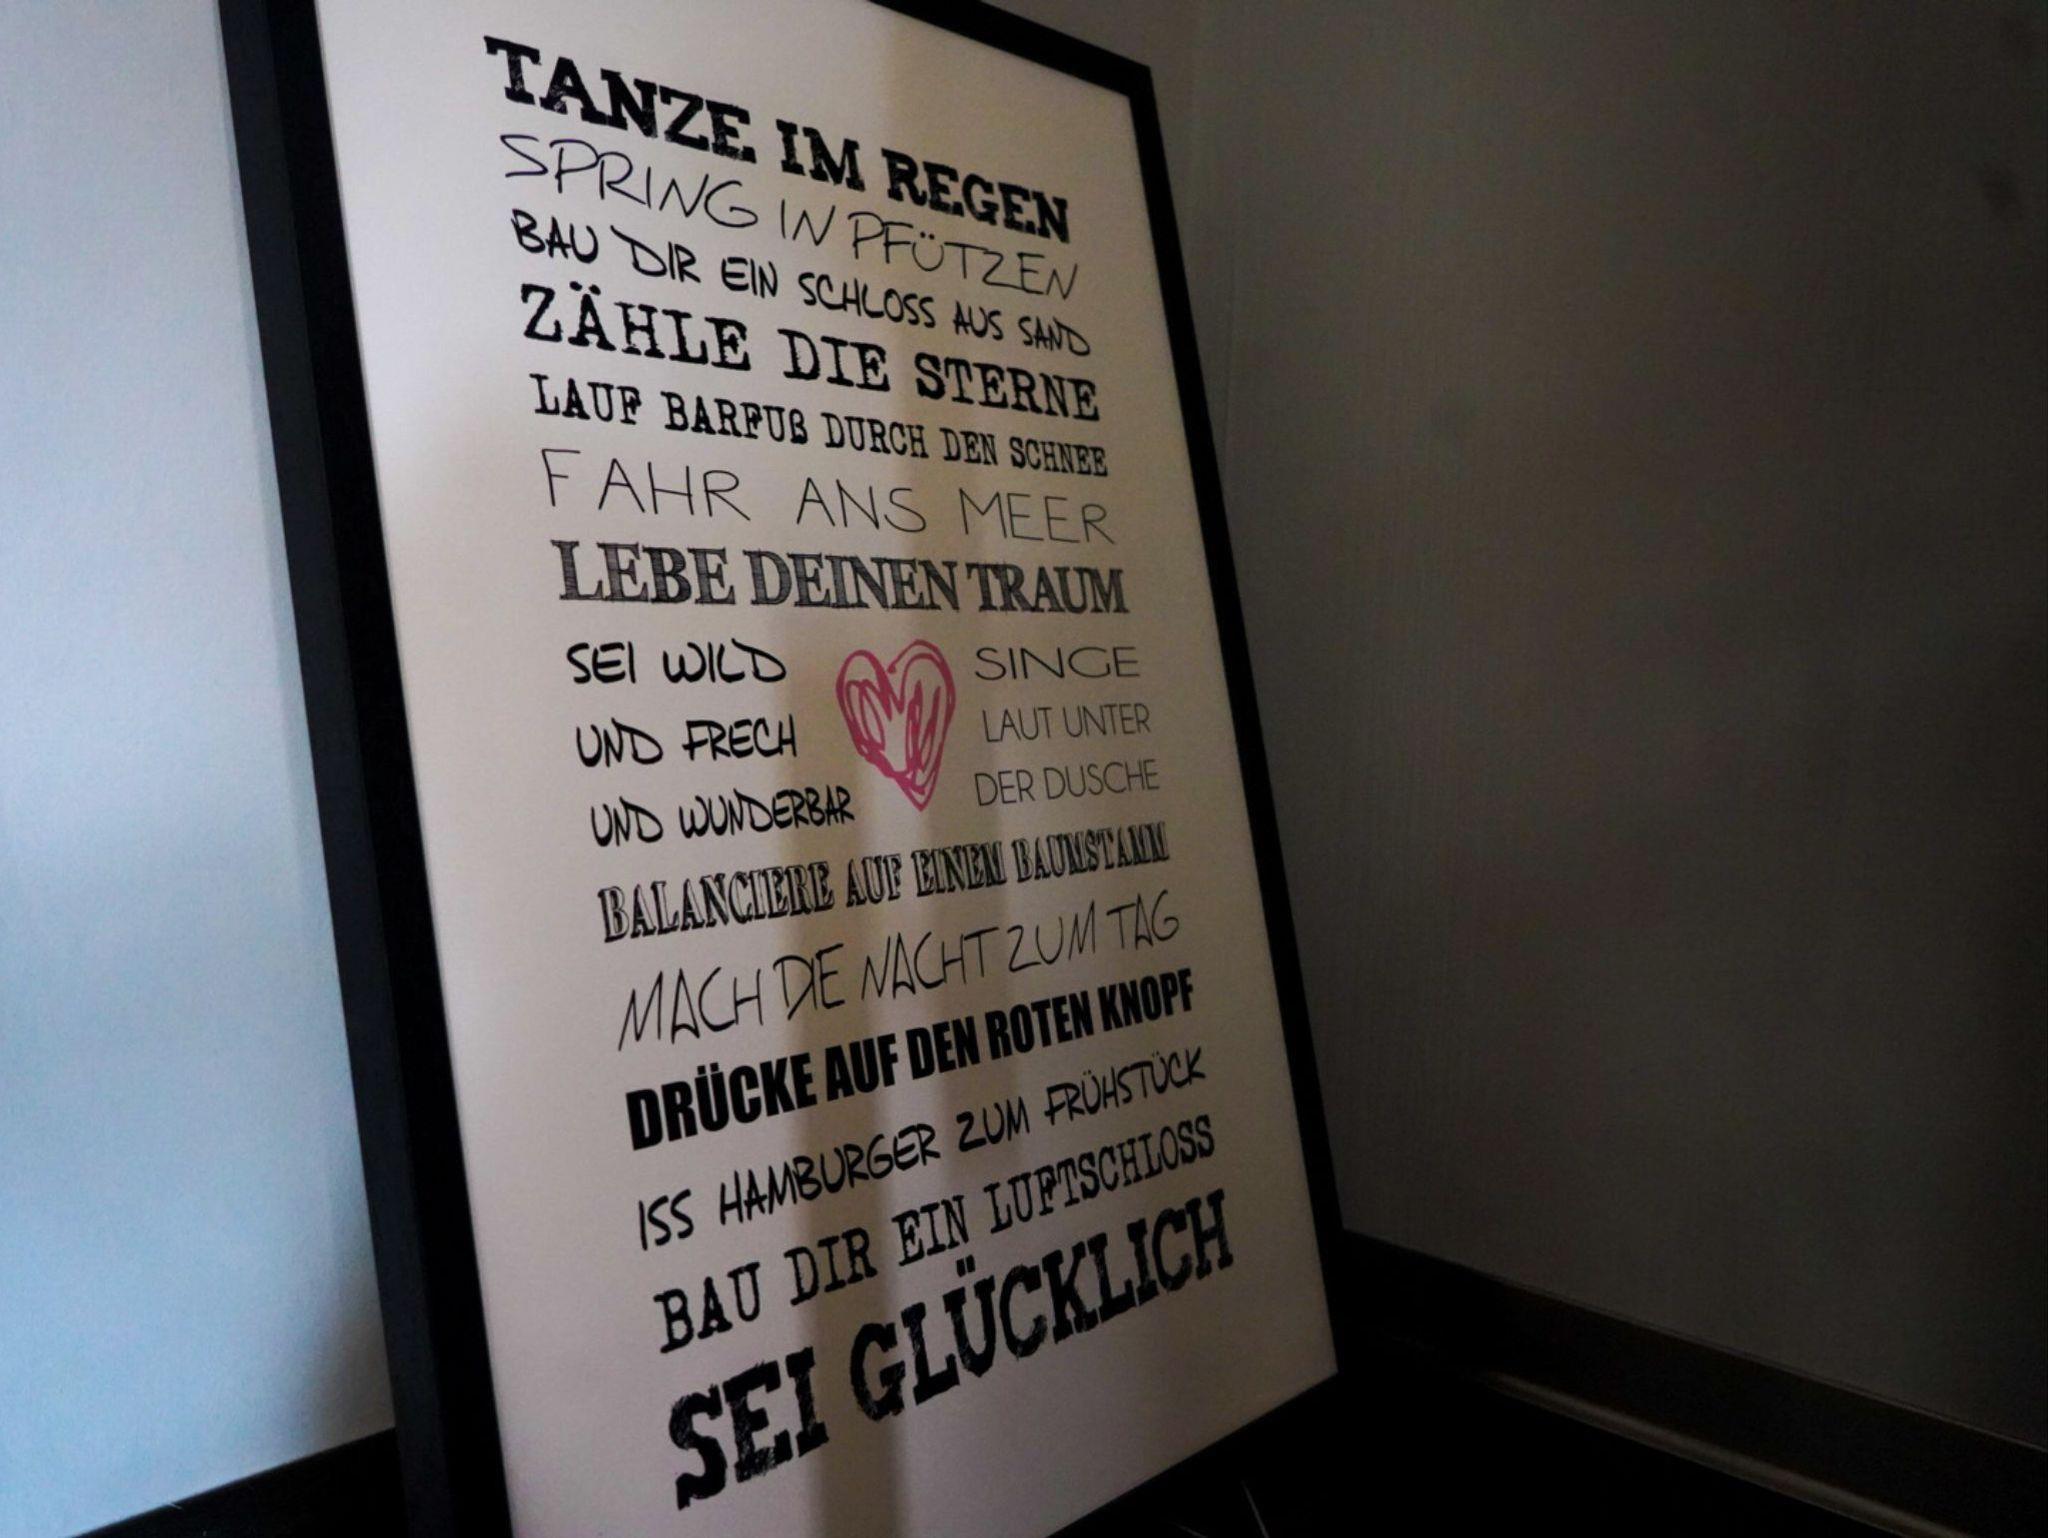 TANZE IM REGEN
SPRING IN PFÜTZEN
BAU DIR EIN SCHLOSS AUS SAND
ZÄHLE DIE STERNE
LAUF BARFUß DURCH DEN SCHNEE
FAHR ANS MEER
LEBE DEINEN TRAUM
SEI WILD
UND FRECH
UND WUNDERBAR
SINGE
LAUT UNTER
DER DUSCHE
BALANCIERE AUF EINEM BAUMSTAMM
MACH DIE NACHT ZUM TAG
DRÜCKE AUF DEN ROTEN KNOPF
ISS HAMBURGER ZUM FRÜHSTÜCK
BAU DIR EIN LUFTSCHLOSS
SEI GLÜCKLICH